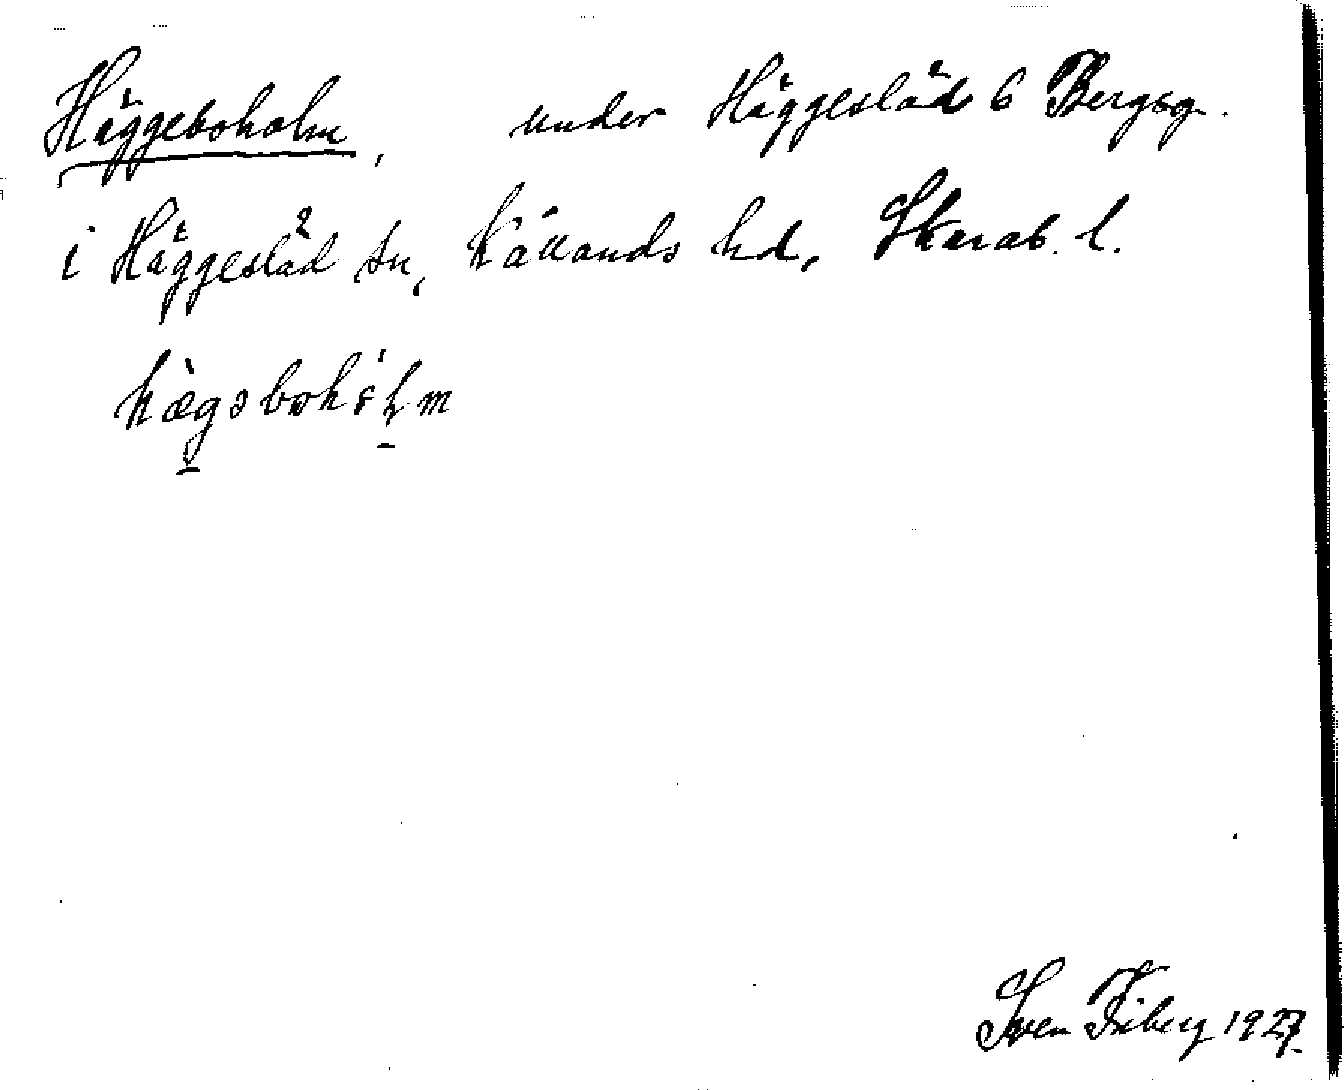 Häggeboholm, under Häggeslåd 6 Bergsg.
i Häggeslåd sn, Kållands hd, Skarab. l.
hægəboh
Sven Fiberg 1927.